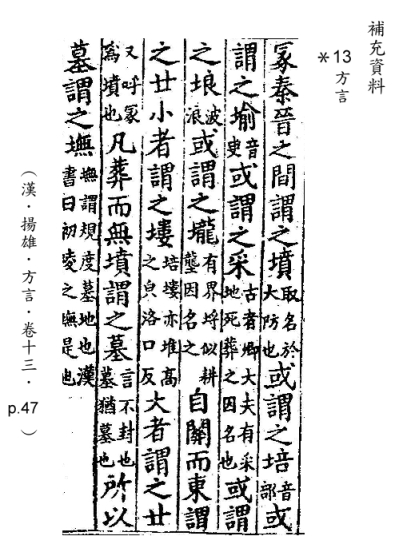 補充資料
*13 方言
冢秦晉之間謂之墳取名於大防也或謂之培音部或
謂之堬音臾或謂之采古者卿大夫有采地死葬之因名也或謂
之埌波浪或謂之壠有界埒似耕壠因名之自關而東謂
之丘小者謂之塿培塿亦堆高之皃洛口反大者謂之丘
又呼冢為墳也凡葬而無墳謂之墓言不封也墓猶慕也所以
墓謂之墲墲謂規度墓地也漢書曰初陵之墲是也
（漢．揚雄．方言．卷十三．p.47）